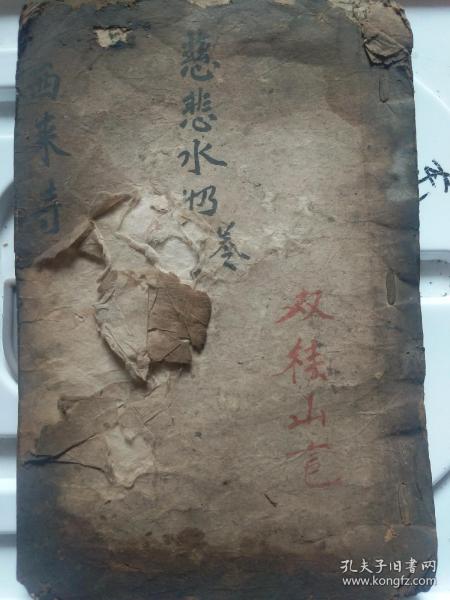 慈悲水忏卷
西来寺
双
山
孔夫子旧书网
www.kongfz.com